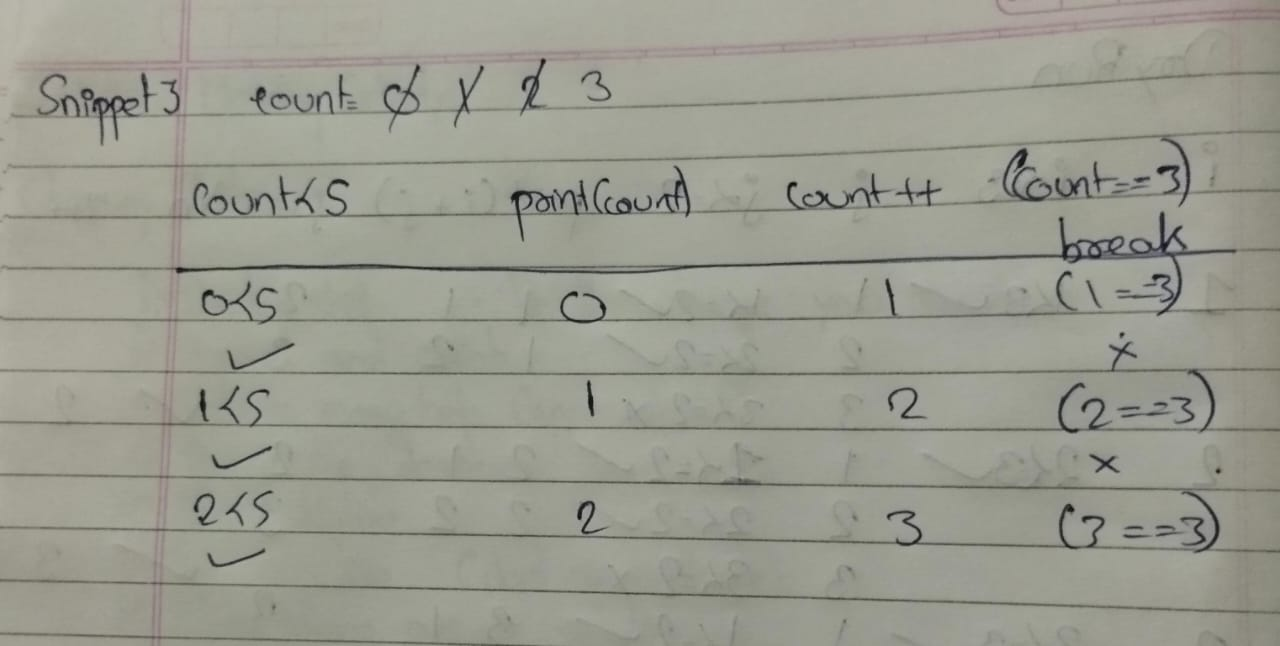 Snippet 3 count= 0 1 2 3
Count<5 print(count) Count++ (Count==3)
break
0<5 0 1 (1==3)
✓ ×
1<5 1 2 (2==3)
✓ ×
2<5 2 3 (3==3)
✓